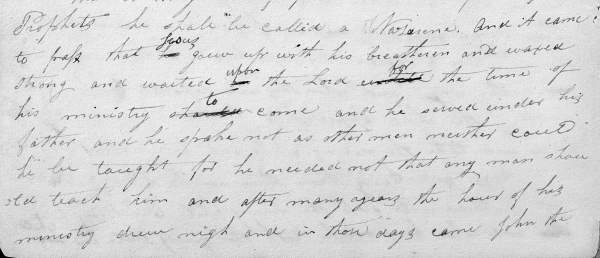 Prophets he shall be called a Nazarene. And it came
to pass that Jesus grew up with his breatheren and waxed
strong and waited upon the Lord for the time of
his ministry to come and he served under his
father and he spake not as other men neither could
he be taught for he needed not that any man shou
ld teach him and after many years the hour of his
ministry drew nigh and in those days came John the